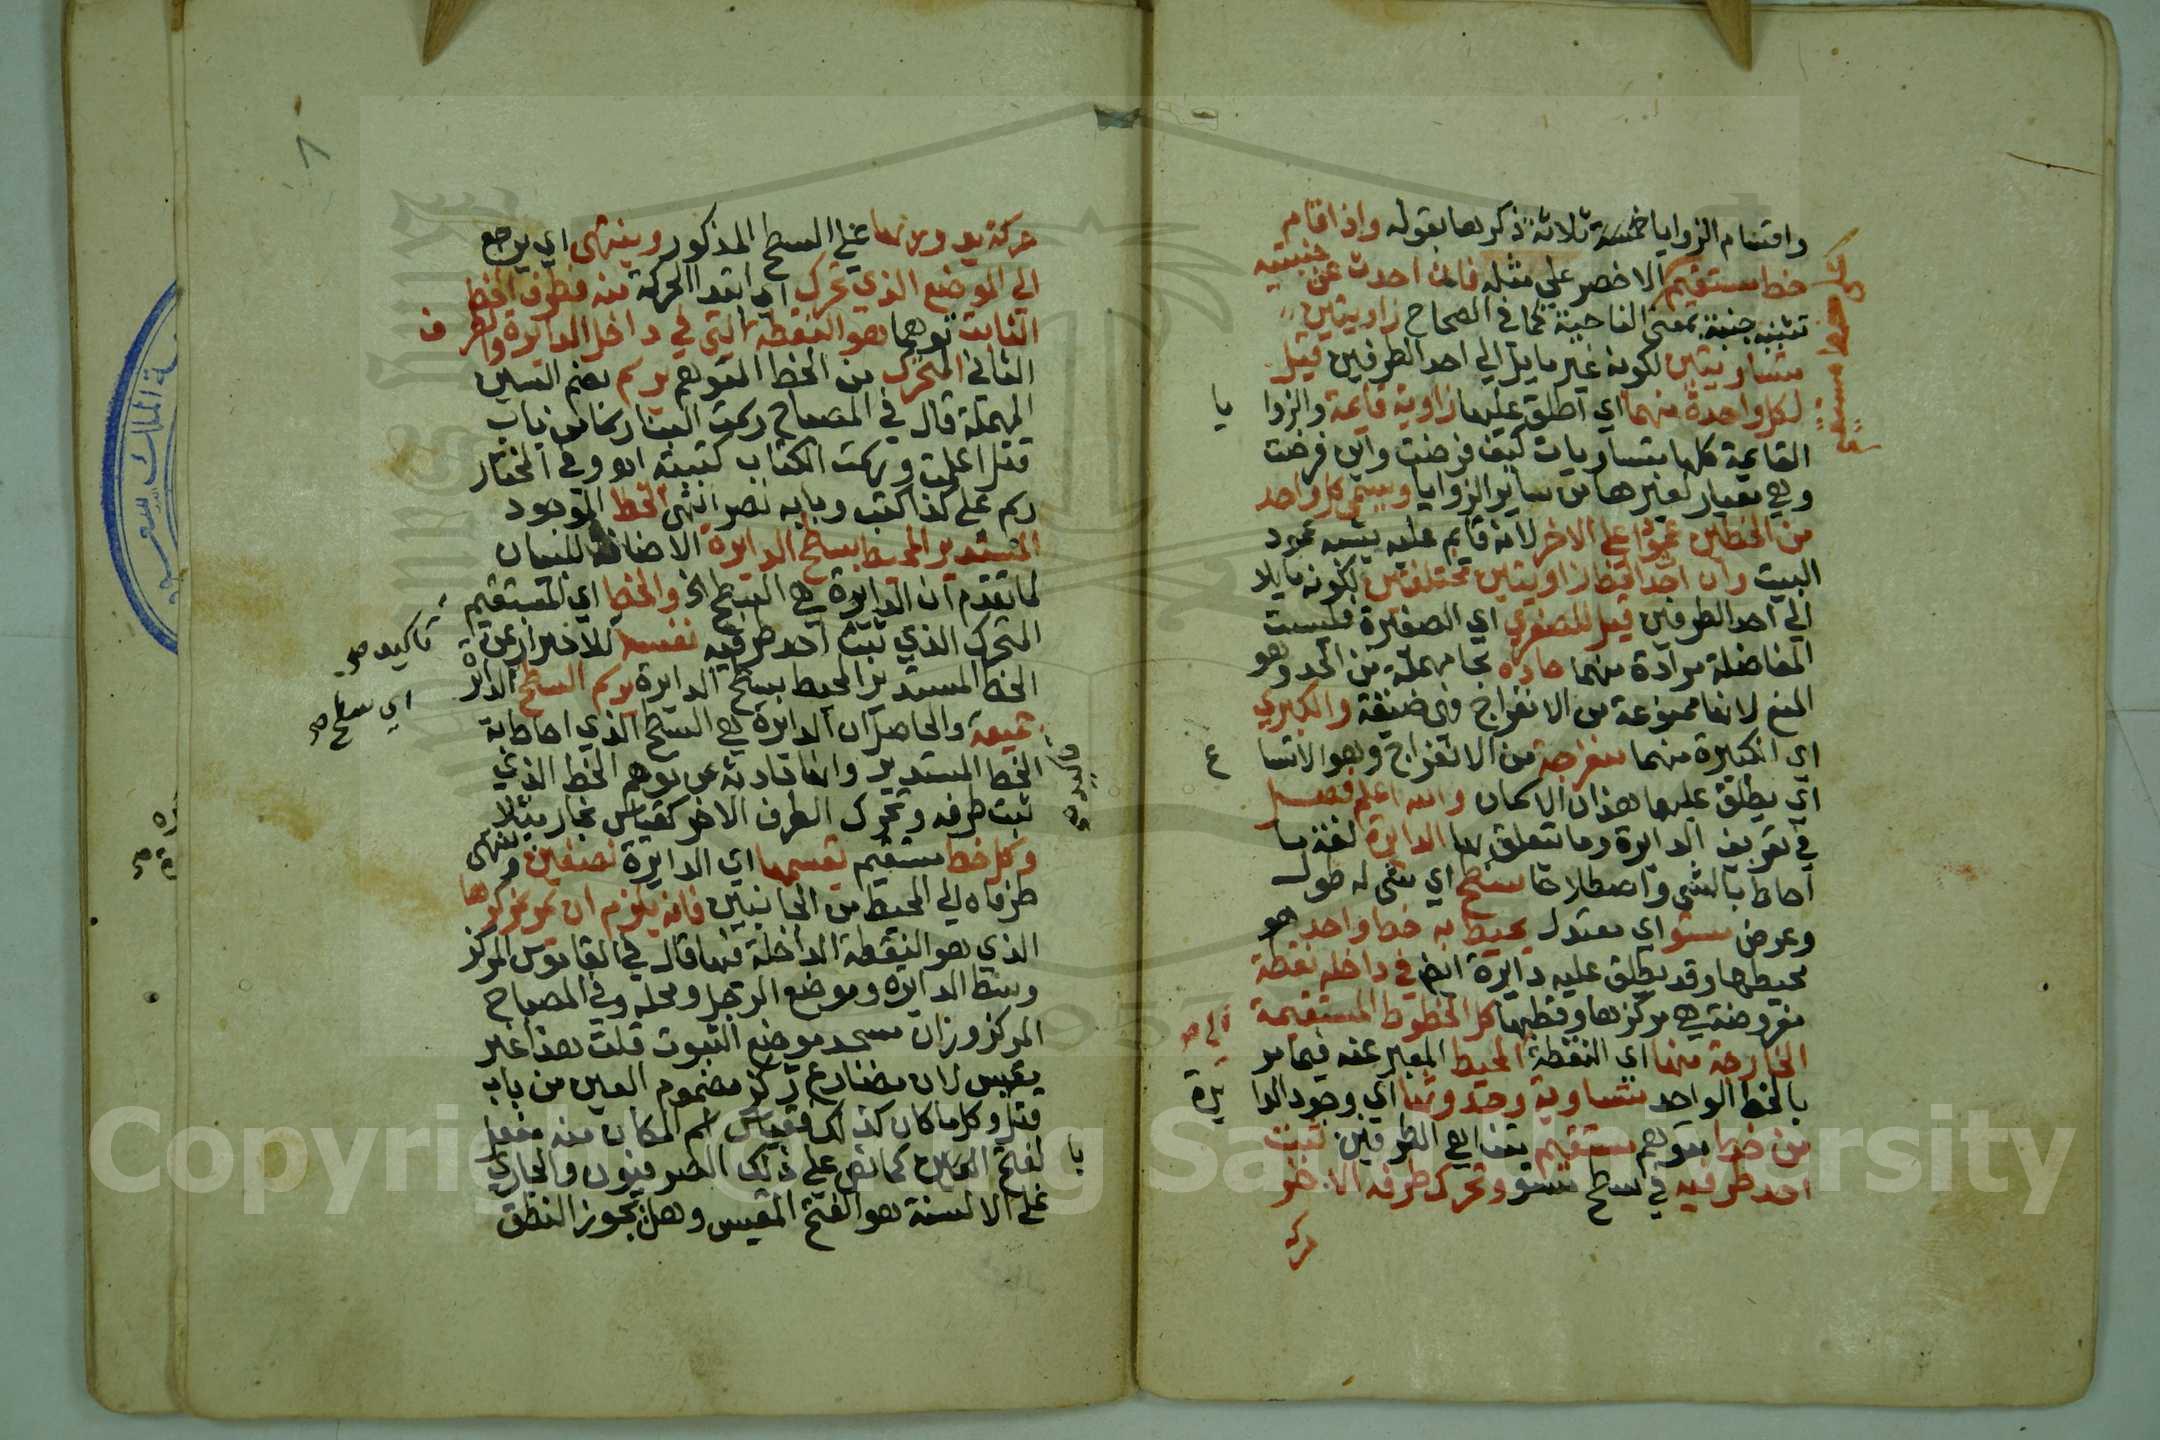 واقسام الزوايا خمسة ثلاثة ذكرها بقوله واذا قام
خط مستقيم الاخصر على مثله فاما احدث عن جنبتيه
تثنية جنبة بمعنى الناحية كما في الصحاح زاويتين
متساويتين لكونه غير مايل الى احد الطرفين قيل
لكل واحدة منهما اي اطلق عليها زاوية قايمة والزوا
يا
القايمة كلها متساويات كيف فرضت واين فرضت
وهي معيار لغيرها من ساير الزوايا ويسمى كل واحد
من الخطين عمودا على الاخر لانه قايم عليه يشبه عمود
البيت وان احدثتا زاويتين مختلفتين لكونه مايلا
الى احد الطرفين قيل للصغرى اي الصغيرة فليست
المفاضلة مرادة منهما حادة بحا مهملة من الحد وهو
المنع لانها ممنوعة من الانفراج فهي ضيقة والكبرى
اي الكبيرة منهما منفرجة من الانفراج وهو الاتسا
ع
اي يطلق عليهما هذان الاسمان والله اعلم فصل
في تعريف الدايرة وما يتعلق بها الدايرة لغة ما
احاط بالشي واصطلاحا سطح اي شي له طول
وعرض مستو اي معتدل يحيط به خط واحد هو
محيطها وقد يطلق عليه دايرة ايض في داخله نقطة
مفروضة هي مركزها وقطبها كل الخطوط المستقيمة
الخارجة منها اي النقطة المحيط المعبر عنه فيما مر
الى صح
بالخط الواحد متساوية وحدوثها اي وجود الدا
يرة
من خط متوهم مستقيم متناهي الطرفين تثبت
احد طرفيه في سطح مستو وتحرك طرفه الاخر
حركة
حركة يدور بها على السطح المذكور وينتهى اي يرجع
الى الموضع الذي تحرك اي ابتدا الحركة منه فطرف الخط
الثابت توهما هو النقطة التي في داخل الدايرة والطرف
الثاني المتحرك من الخط المتوهم يرسم بضم السين
المهملة قال في المصباح رسمت البنا رسما من باب
قتل اعلمت ورسمت الكتاب كتبته اه وفي المختار
رسم على كذا كتب وبابه نصر انتهى الخط الموجود
المستدير المحيط بسطح الدايرة الاضافة للبيان
لما تقدم ان الدايرة هي السطح الخ والخط اي المستقيم
المتحرك الذي ثبت احد طرفيه نفسه للاحتراز عن
تاكيد صح
الخط المستدير المحيط بسطح الدايرة يرسم السطح الدايرة
اي سطح صح
جميعه والحاصل ان الدايرة هي السطح الذي احاط به
الخط المستدير وانها حادثة عن توهم الخط الذي
ثبت طرفه وتحرك الطرف الاخر كقياس نجار مثلا
وكل خط مستقيم تقسمها اي الدايرة نصفين وينتهى
طرفاه الى المحيط من الجانبين فانه يلزم ان يمر بمركزها
الذي هو النقطة الداخلة فيها قال في القاموس المركز
وسط الدايرة وموضع الرجل ومحله وفي المصباح
المركز وزان مسجد موضع الثبوت قلت هذا غير
مقيس لان مضارع ركز مضموم العين من باب
قتل وكل ما كان كذلك فقياس اسم المكان منه مفعل
بفتح العين كما نص على ذلك الصرفيون والجاري
على الالسنة هو الفتح المقيس وهل يجوز النطق
Copyright © King Saud University
1957